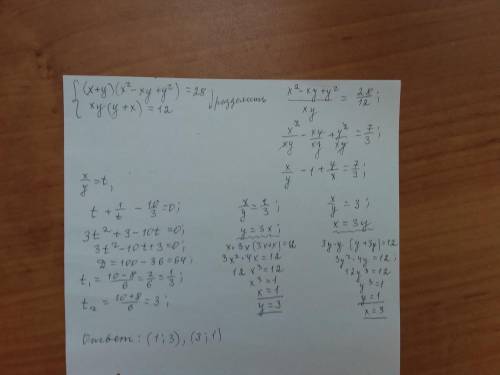 { (x+y)(x²-xy+y²)=28
xy(y+x)=12 ↓разделить
(x²-xy+y²)/xy = 28/12;
x²/xy - xy/xy + y²/xy = 7/3;
x/y - 1 + y/x = 7/3;
x/y = t,
t + 1/t - 10/3 = 0;
3t²+3-10t=0;
3t²-10t+3=0;
D=100-36=64;
t₁ = (10-8)/6 = 2/6 = 1/3;
t₂ = (10+8)/6 = 3;
x/y = 1/3;
y=3x;
x·3x(3x+x)=12
3x²·4x=12
12x³=12
x³=1
x=1
y=3
x/y = 3;
x=3y
3y·y·(y+3y)=12
3y²·4y=12;
12y³=12
y³=1
y=1
x=3
Ответ: (1;3), (3;1)